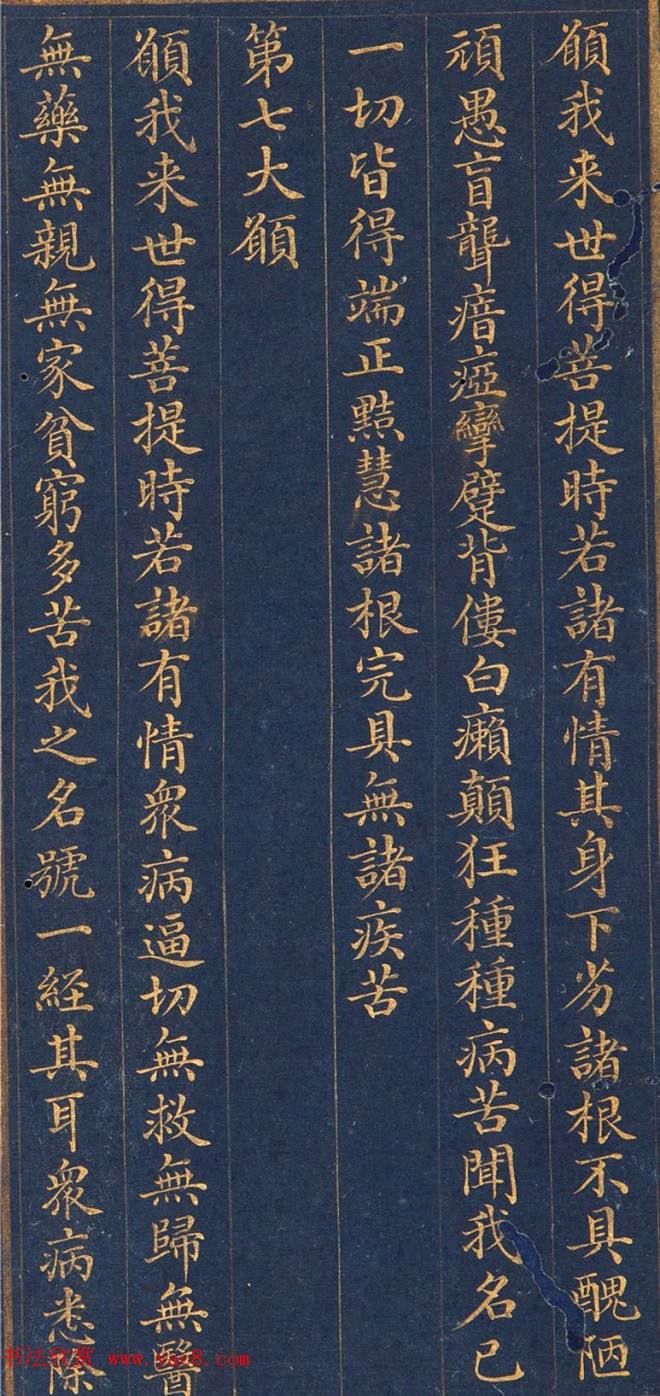 願我来世得菩提時若諸有情其身下劣諸根不具醜陋
頑愚盲聾瘖瘂攣躄背僂白癩顛狂種種病苦聞我名已
一切皆得端正黠慧諸根完具無諸疾苦
第七大願
願我来世得菩提時若諸有情衆病逼切無救無歸無醫
無藥無親無家貧窮多苦我之名號一経其耳衆病悉除
书法欣赏 www.yac8.com